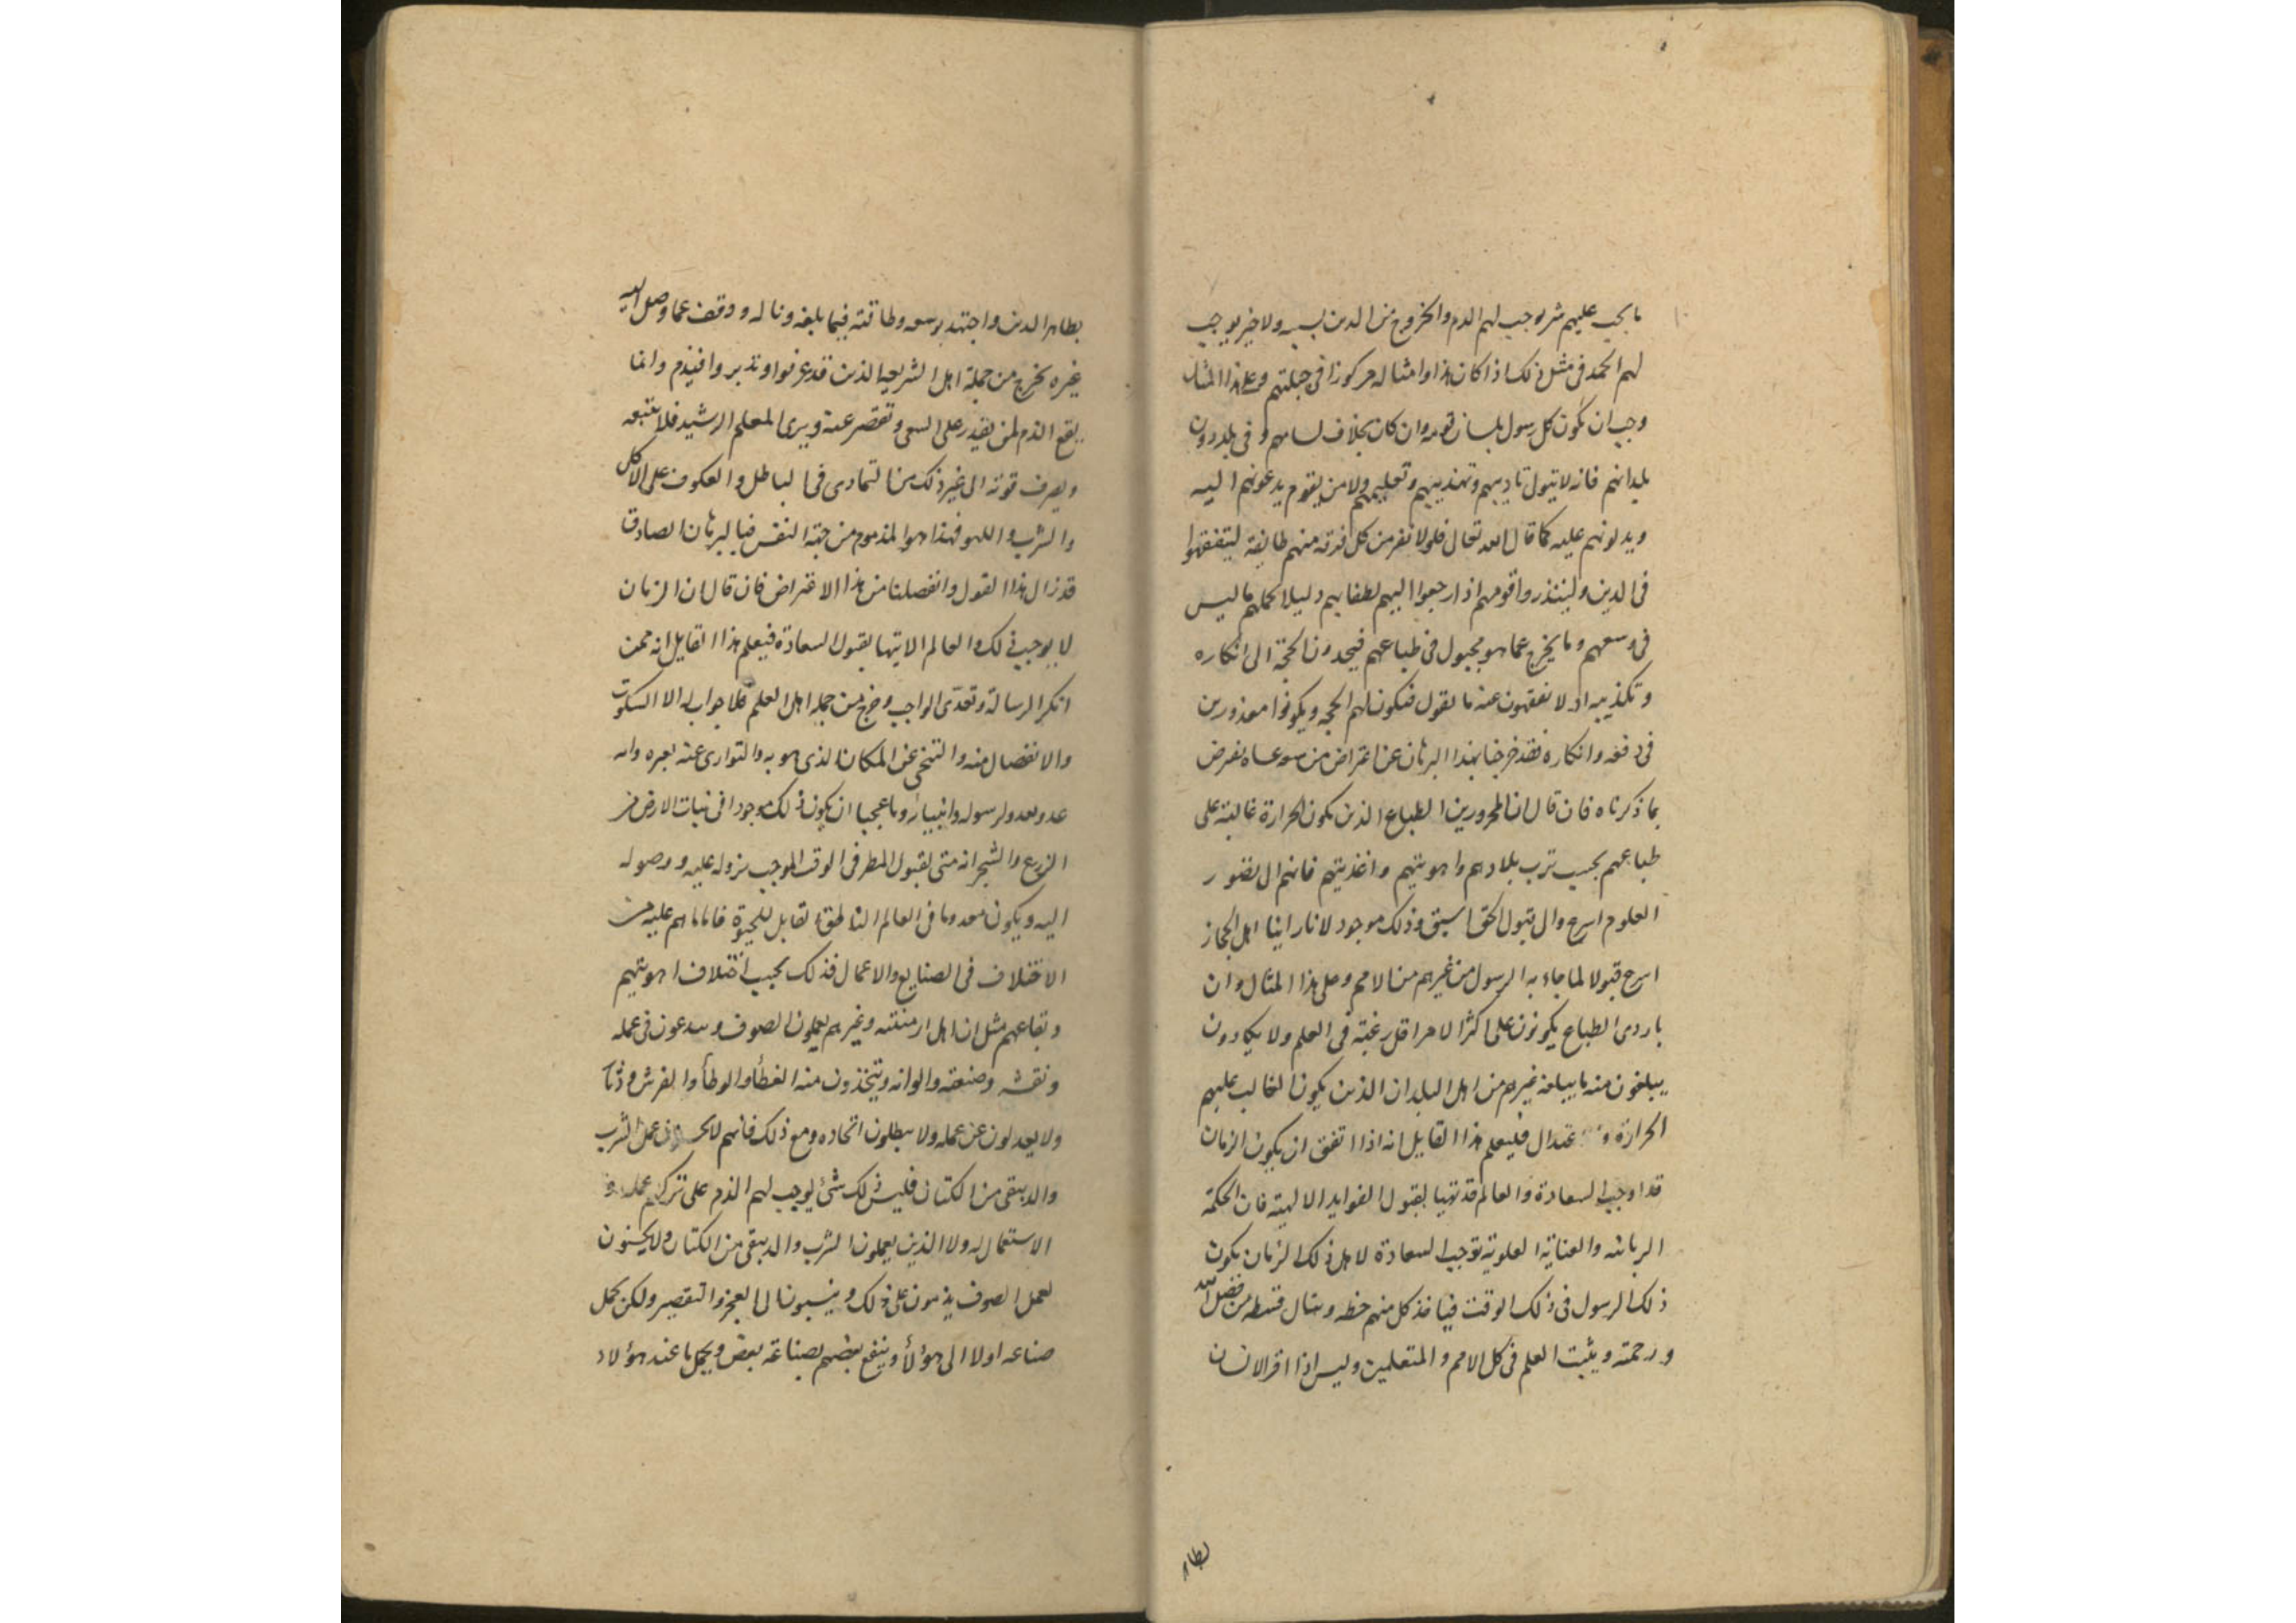 ما يجب عليهم شر يوجب لهم الذم والخروج من الدين بسببه ولا خير يوجب
لهم الحمد فى مثل ذلك اذا كان هذا وامثاله مركوزا فى جبلتهم وعلى هذا المثال
وجب ان يكون كل رسول بلسان قومه وان كان بخلاف لسانهم وفى بلد دون
بلدانهم فانه لا يتول تاديبهم وتهذيبهم وتعليمهم ولا من يقوم يدعونهم اليه
ويدلونهم عليه كما قال الله تعالى فلولا نفر من كل فرقة منهم طايفة ليتفقهوا
فى الدين ولينذروا قومهم اذا رجعوا اليهم لطفا بهم وليلا يحملهم ما ليس
فى وسعهم وما يخرج عما هو مجبول فى طباعهم فيجدون الحجة الى انكاره
وتكذيبه اذ لا يفقهون عنه ما يقول فيكون لهم الحجه ويكونوا معذورين
فى دفعه وانكاره فقد خرجنا بهذا البرهان عن اعتراض من عساه يعرض
بما ذكرناه فان قال ان المحرورين الطباع الذين يكون الحرارة غالبة على
طباعهم بحسب ترب بلادهم واهويتهم واغذيتهم فانهم الى تصور
العلوم اسرع والى قبول الحق اسبق وذلك موجود لانا راينا اهل الحجاز
اسرع قبولا لما جاء به الرسول من غيرهم من الامم وعلى هذا المثال وان
باردى الطباع يكونون على اكثر الامر اقل رغبة فى العلم ولا يكادون
يبلغون منه ما يبلغه غيرهم من اهل البلدان الذين يكون الغالب عليهم
الحرارة و عتدال فليعلم هذا القايل انه اذا اتفق ان يكون الزمان
قد اوجب السعادة والعالم قد تهيا لقبول الفوايد الالهية فان الحكمة
الربانيه والعناية العلوية توجب السعادة لاهل ذلك الزمان بكون
ذلك الرسول فى ذلك الوقت فياخذ كل منهم حظه وينال قسطه من فضل الله
ورحمته ويثبت العلم فى كل الامم والمتعلمين وليس اذا اقر الانسان
بظاهر
بظاهر الدين واجتهد بوسعه وطاقته فيما بلغه وناله ووقف عما وصل اليه
غيره يخرج من جملة اهل الشريعة الذين قد عرفوا وتدبروا فيذم وانما
يقع الذم لمن يقدر على السعى وتقصر عنه ويرى المعلم الرشيد فلا يتبعه
ويصرف قوته الى غير ذلك من التمادى فى الباطل والعكوف على الاكل
والشرب واللهو فهذا هو المذموم من جهة النفس فبالبرهان الصادق
قد زال هذا القول وانفصلنا من هذا الاعتراض فان قال ان الزمان
لا يوجب ذلك والعالم لا يتهيا لقبول السعادة فيعلم هذا القايل انه ممن
انكر الرسالة وتعدى الواجب وخرج من جمله اهل العلم فلا جواب له الا السكوت
والانفصال منه والتنحى عن المكان الذى هو به والتوارى عنه وانه
عدو لله ولرسوله وانبيائه وما عجبا ان يكون ذلك موجودا فى نبات الارض من
الزرع والشجر انه متى لقبول المطر فى الوقت الموجب نزوله عليه ووصوله
اليه ويكون معدوما فى العالم الناطق القابل للحيوة فاما ما هم عليه من
الاختلاف فى الصنايع والاعمال فذلك بحسب اختلاف اهويتهم
وبقاعهم مثل ان اهل ارمنية وغيرهم يعملون الصوف ويبدعون فى عمله
ونقشه وصنعته والوانه ويتخذون منه الغطأ والوطأ والفرش
ولا يعدلون عن عمله ولا يبطلون اتخاده ومع ذلك فانهم لا يحسنون عمل الشرب
والدبيقى من الكتان فليس ذلك شئ يوجب لهم الذم على تركهم عمله و
الاستعمال له ولا الذين يعملون الشرب والدبيقى من الكتان ولا يحسنون
لعمل الصوف يذمون على ذلك وينسبون الى العجز والتقصير ولكن يحمل
صناعه اولا الى هؤلأ وينفع بعضهم بصناعة بعض ويحمل ما عند هؤلاء